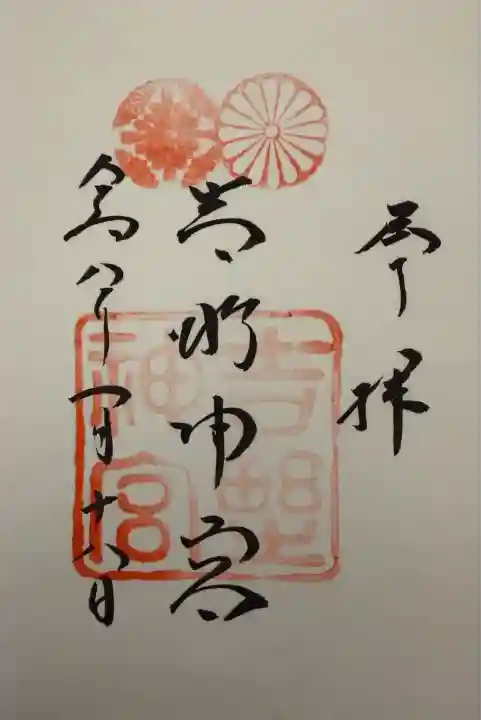 奉拝
吉野神宮
令和八年一月十八日
吉野
神宮